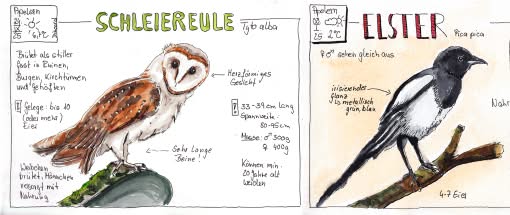 Apelern
6,1°C
SCHLEIEREULE
Tyto alba
Brütet als stiller
Gast in Ruinen,
Burgen, Kirchtürmen
und Gehöften
Gelege: bis 10
(oder mehr)
Eier
Weibchen
brütet, Männchen
versorgt mit
Nahrung
Herzförmiges
Gesicht
33-39cm lang
Spannweite:
80-95cm
Masse: ♂ 300g
♀ 400g
Können min.
20 Jahre alt
werden
Sehr lange
Beine!
Apelern
25
2°C
ELSTER
Pica pica
♀♂ sehen gleich aus
irisierender
Glanz
↳ metallisch
grün, blau
Nahr
4-7 Eier